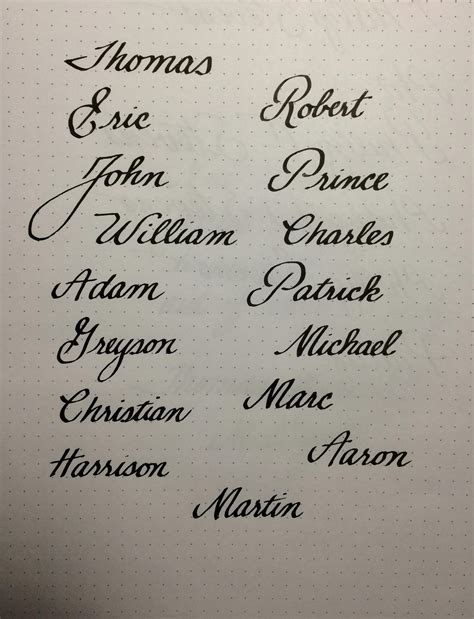 Thomas
Eric Robert
John Prince
William Charles
Adam Patrick
Greyson Michael
Christian Marc
Harrison Aaron
Martin